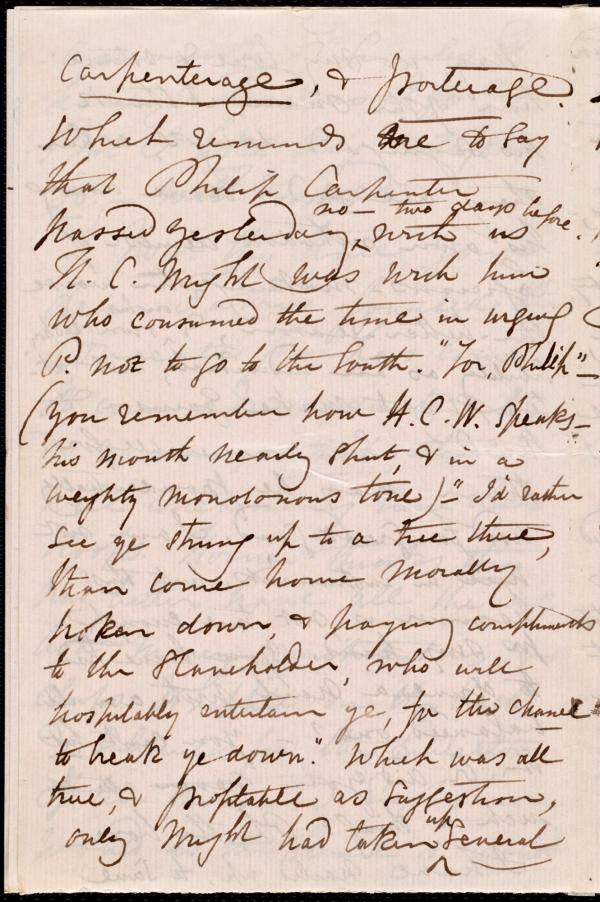 Carpenterage, & porterage.
Which reminds me to say
that Philip Carpenter
no - two days before.
passed yesterday, with us
H. C. Wright was with him
who consumed the time in urging
P. not to go to the South. "For, Philip" -
(you remember how H. C. W. speaks -
his mouth nearly shut, & in a
weighty monotonous tone) - "I'd rather
see ye strung up to a tree there,
than come home morally
broken down, & paying compliments
to the Slaveholder, who will
hospitably entertain ye, for the chance
to break ye down." Which was all
true, & profitable as suggestion,
only Wright had taken up several